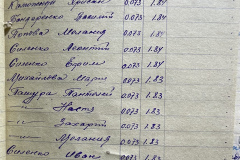 0.073 1.84
Бондаренко Василий 0.073 1.84
Попова Мелания 0.073 1.84
Силенко Леонтий 0.073 1.84
Силенко Ефим 0.073 1.84
Михайлева Марія 0.073 1.83
Пантелей 0.073 1.83
" Настя 0.073 1.83
" Захарий 0.073 1.83
" Мелания 0.073 1.83
Силенко Иван 0.073 1.83